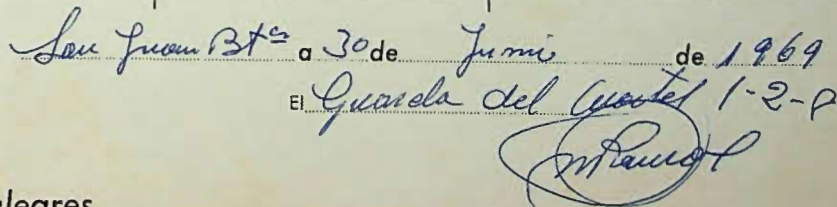 San Juan Bta a 30 de Juni de 1969
El Guarda del Cuartel 1-2-P
alegres